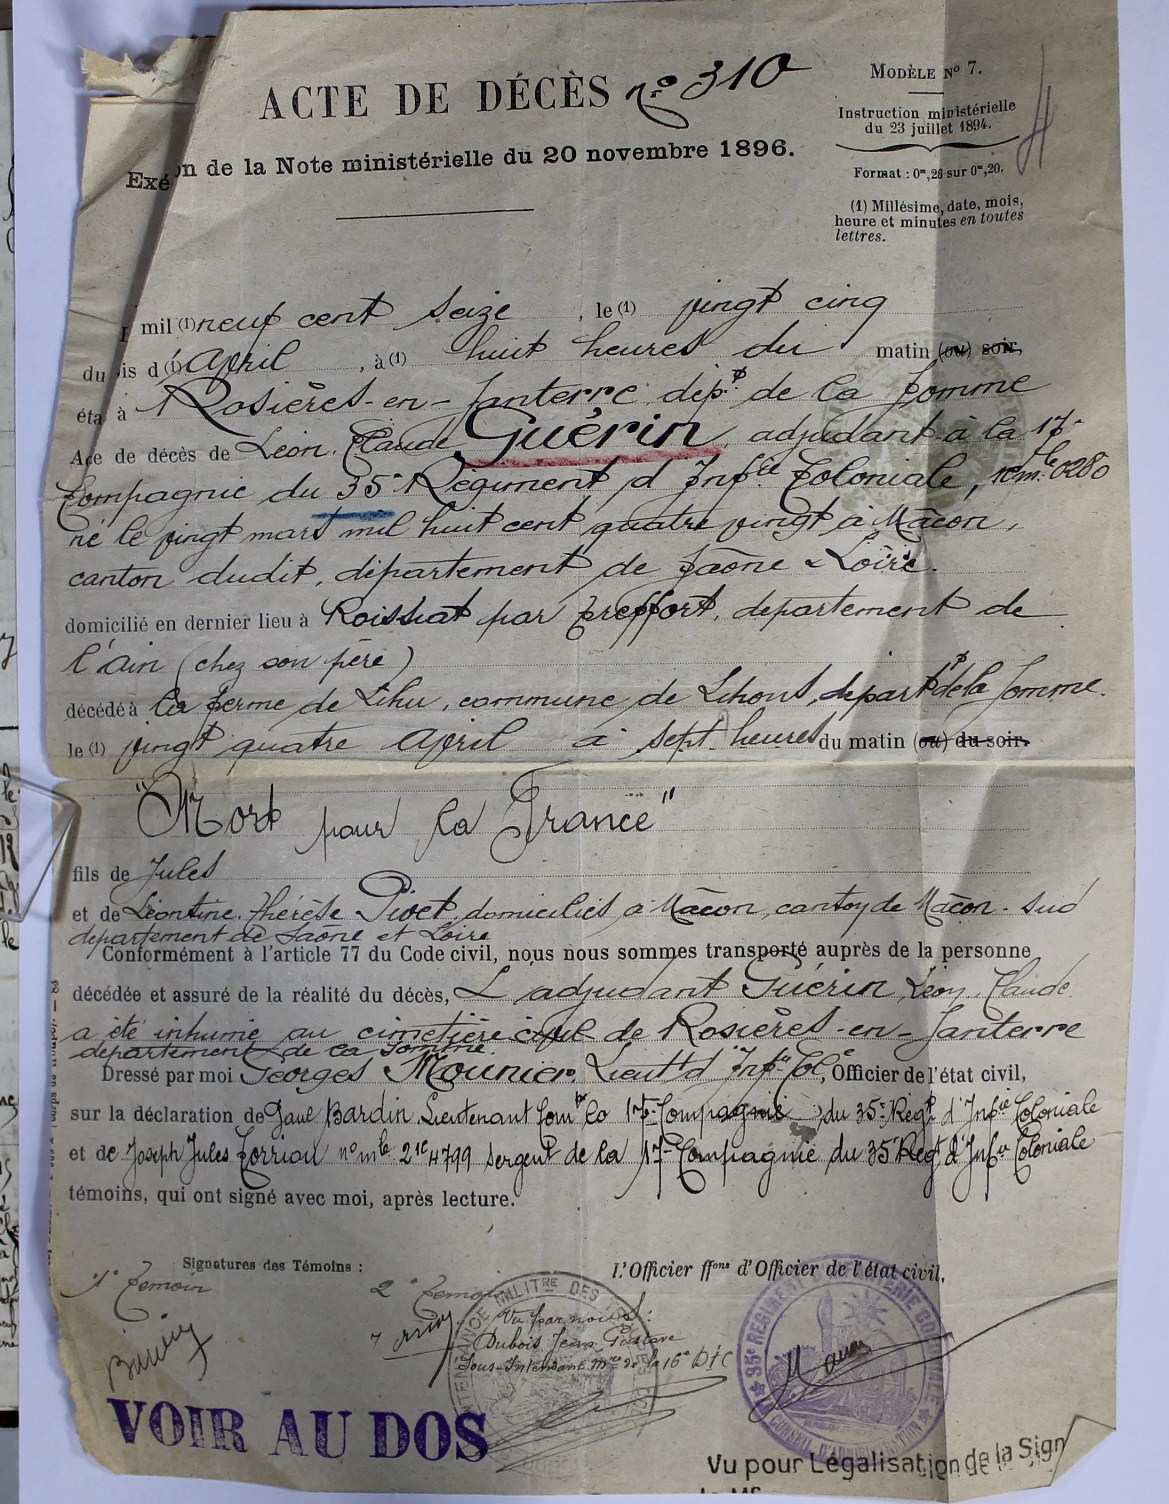 ACTE DE DÉCÈS No 310
MODÈLE No 7.
Instruction ministérielle
du 23 juillet 1894.
Format : 0m,26 sur 0m,20.
(1) Millésime, date, mois,
heure et minutes en toutes
lettres.
Exé on de la Note ministérielle du 20 novembre 1896.
mil (1) neuf cent seize , le (1) vingt cinq
du is d (1) avril , à (1) huit heures du matin (ou) soir,
éta à Rosières-en-Santerre dépt de la Somme
A e de décès de Léon Claude Guérin, adjudant à la 17e
Compagnie du 35e Régiment d'Infie Coloniale, nemle 0280
né le vingt mars mil huit cent quatre vingt à Mâcon,
canton dudit, département de Saône & Loire.
domicilié en dernier lieu à Roissiat par Treffort, département de
l'ain (chez son père)
décédé à la ferme de Lihu, commune de Lihons, départt de la Somme.
le (1) vingt quatre avril à sept heures du matin (ou) du soir.
"Mort pour la France"
fils de Jules
et de Léontine Thérèse Pivet, domiciliés à Mâcon, canton de Mâcon-Sud
département de Saône et Loire
Conformément à l'article 77 du Code civil, nous nous sommes transporté auprès de la personne
décédée et assuré de la réalité du décès, L'adjudant Guérin, Léon, Claude
a été inhumé au cimetière civil de Rosières-en-Santerre
département de la Somme.
Dressé par moi Georges Mounier, Lieutt d'Infie Cole, Officier de l'état civil,
sur la déclaration de Paul Bardin Lieutenant Comt la 17e Compagnie du 35e Régt d'Infie Coloniale
et de Joseph Jules nomle 4799 sergent de la 17e Compagnie du 35e Régt d'Infie Coloniale
témoins, qui ont signé avec moi, après lecture.
Signatures des Témoins :
L'Officier ffons d'Officier de l'état civil,
1e Temoin
2e Temoin
Vu par nous :
Dubois Jean Gustave
Sous-Intendant Mre de la 16e DIC
35e RÉGIMENT D'INFANTERIE COLONIALE
CONSEIL D'ADMINISTRATION
VOIR AU DOS
Vu pour Légalisation de la Sign